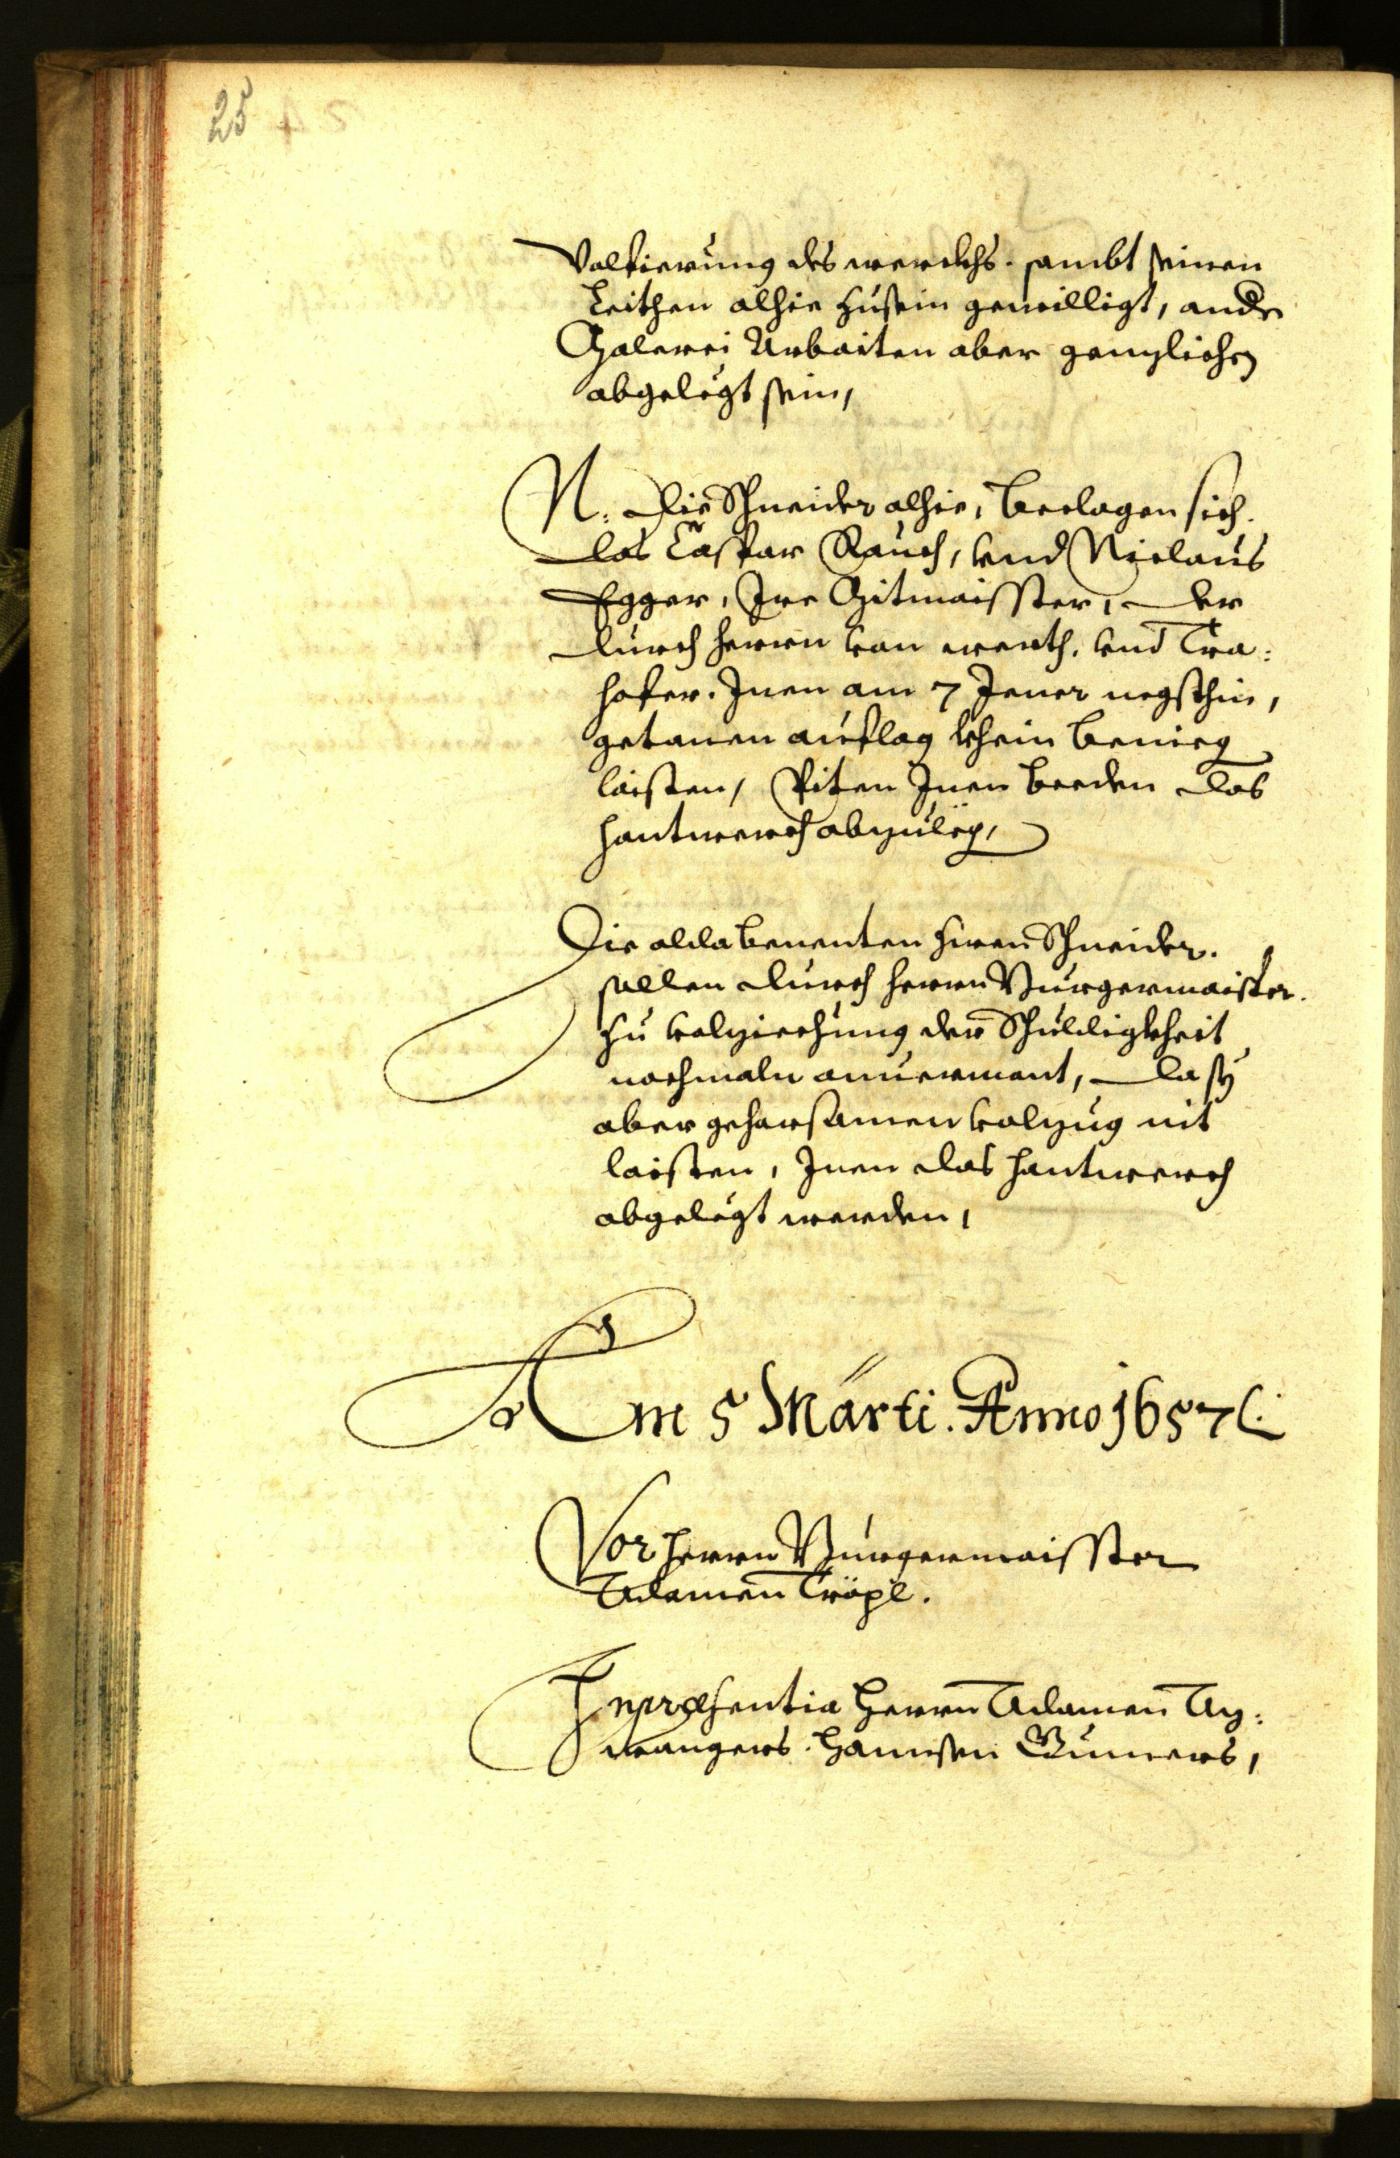 25
Volfierung des werckhs. sambt seinen
Leithen alhie zusein gewilligt, ander
Malerei Arbaiten aber genzlichen
abgelegt sein,
N. die Schneider alhie, beclagen sich.
das Caspar Rauch, vnd Niclaus
Egger, Ire Mitmaisster, der
durch herrn von werth. vnd Tra:
hofer. Inen am 7 Jener negsthin,
getanen auflag khein benieg
laisten, Piten Inen beeden das
hantwerch abzuleg,
Die alda benenten zween Schneider.
sollen durch herrn Burgermaister.
zu volziechung der Schuldigkheit
nochmaln anuermant, da sy
aber gehorsamen volzug nit
laisten, Inen das hantwerch
abgelegt werden,
Am 5 Marti. Anno 1657
Vor herrn Burgermaisster
Adamen Tröpl.
In præsentia Herrn Adamen Ay:
wangers. Hannsen Gumers,